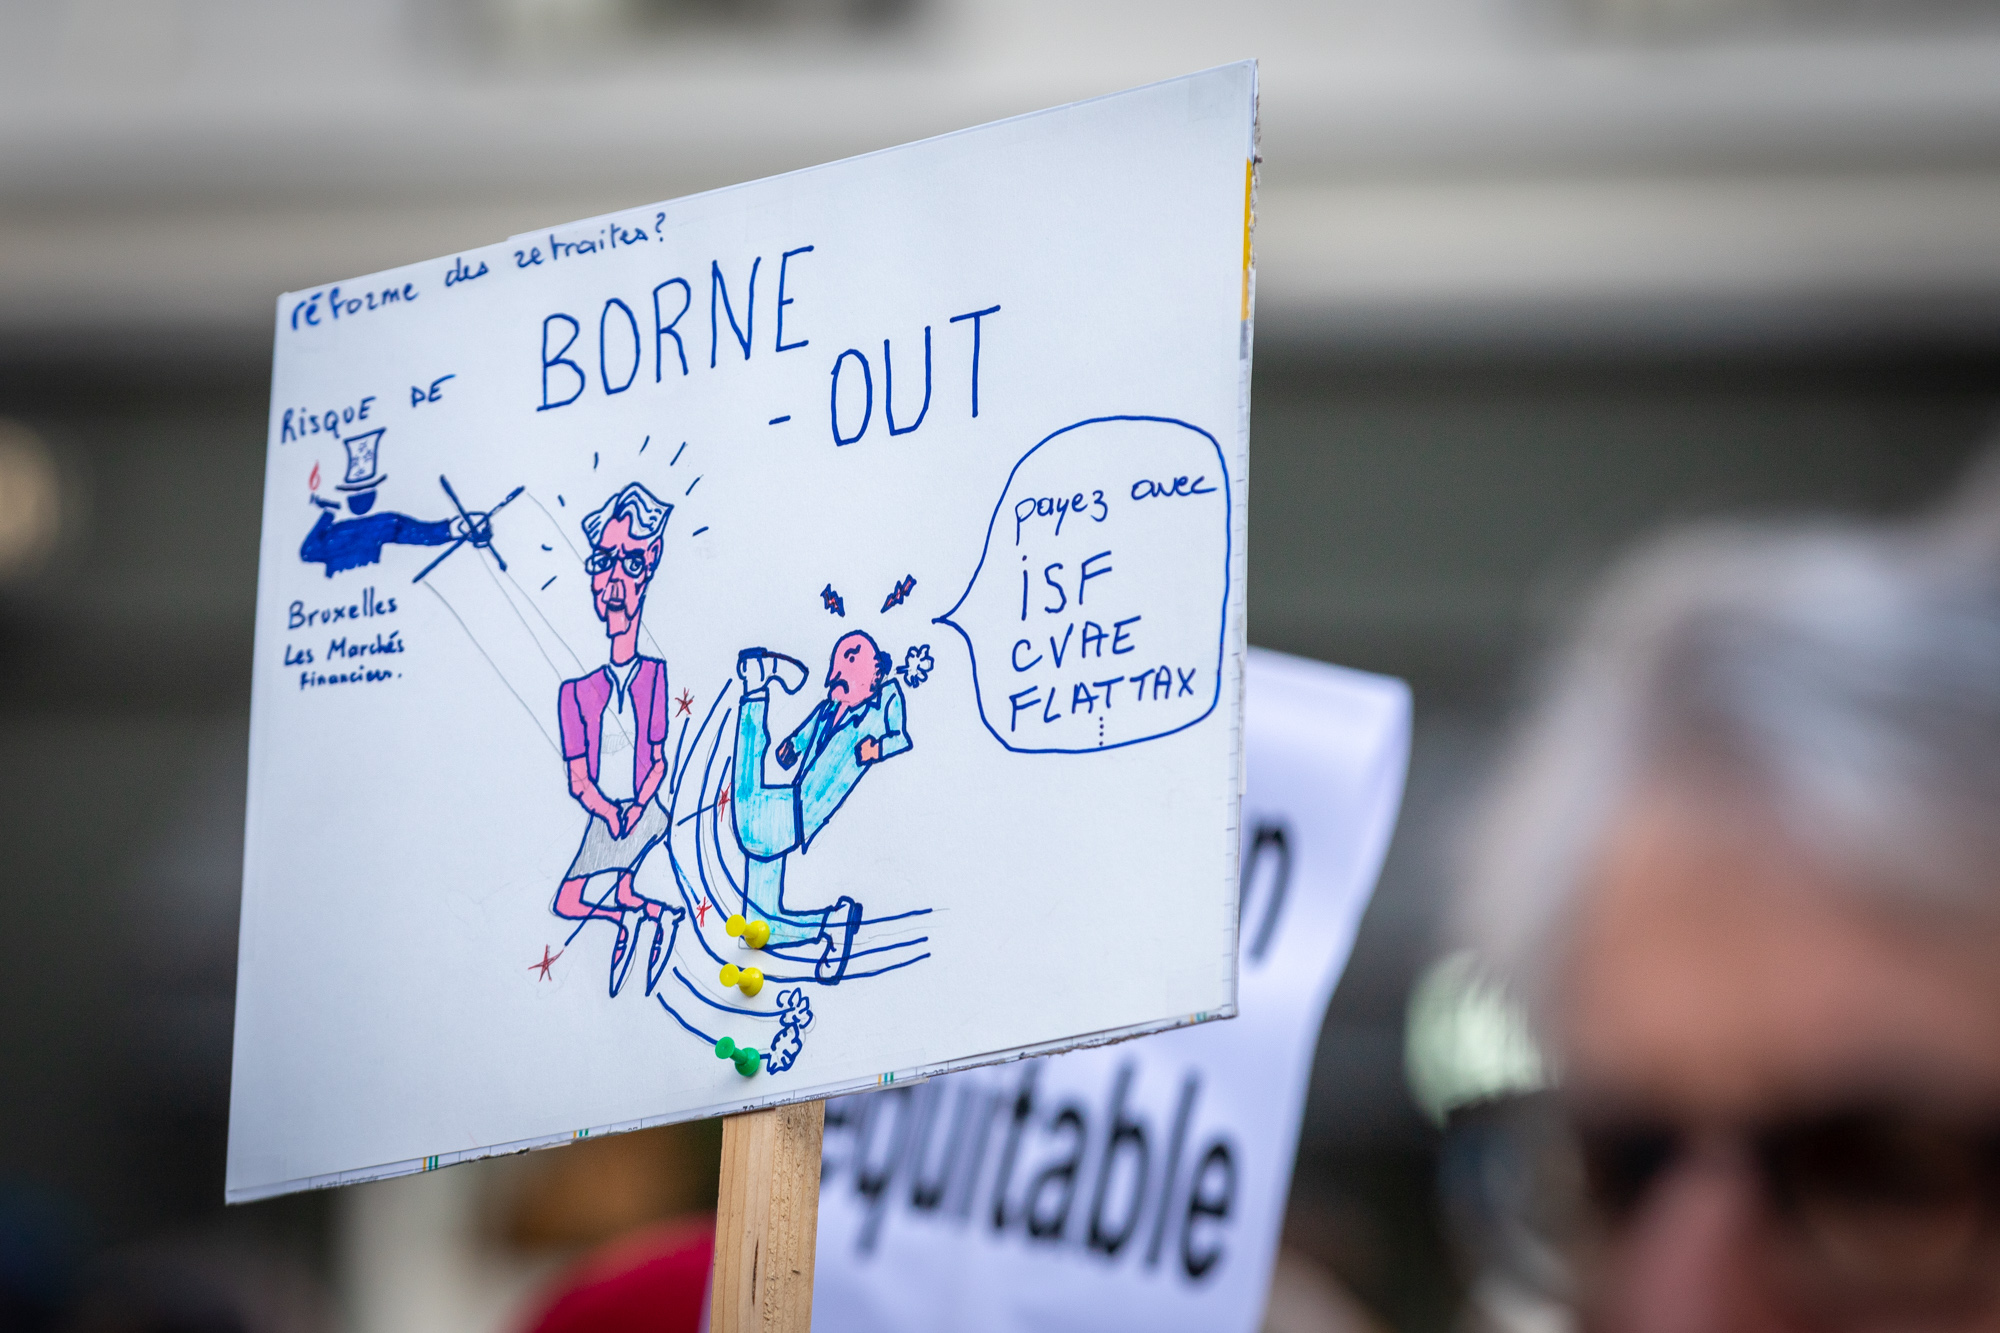 réforme des retraites?
RISQUE DE
BORNE
-OUT
Bruxelles
Les Marchés
Financiers.
payez avec
iSF
CVAE
FLATTAX
n
equitable